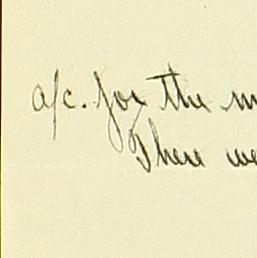 a/c. for the m
There we